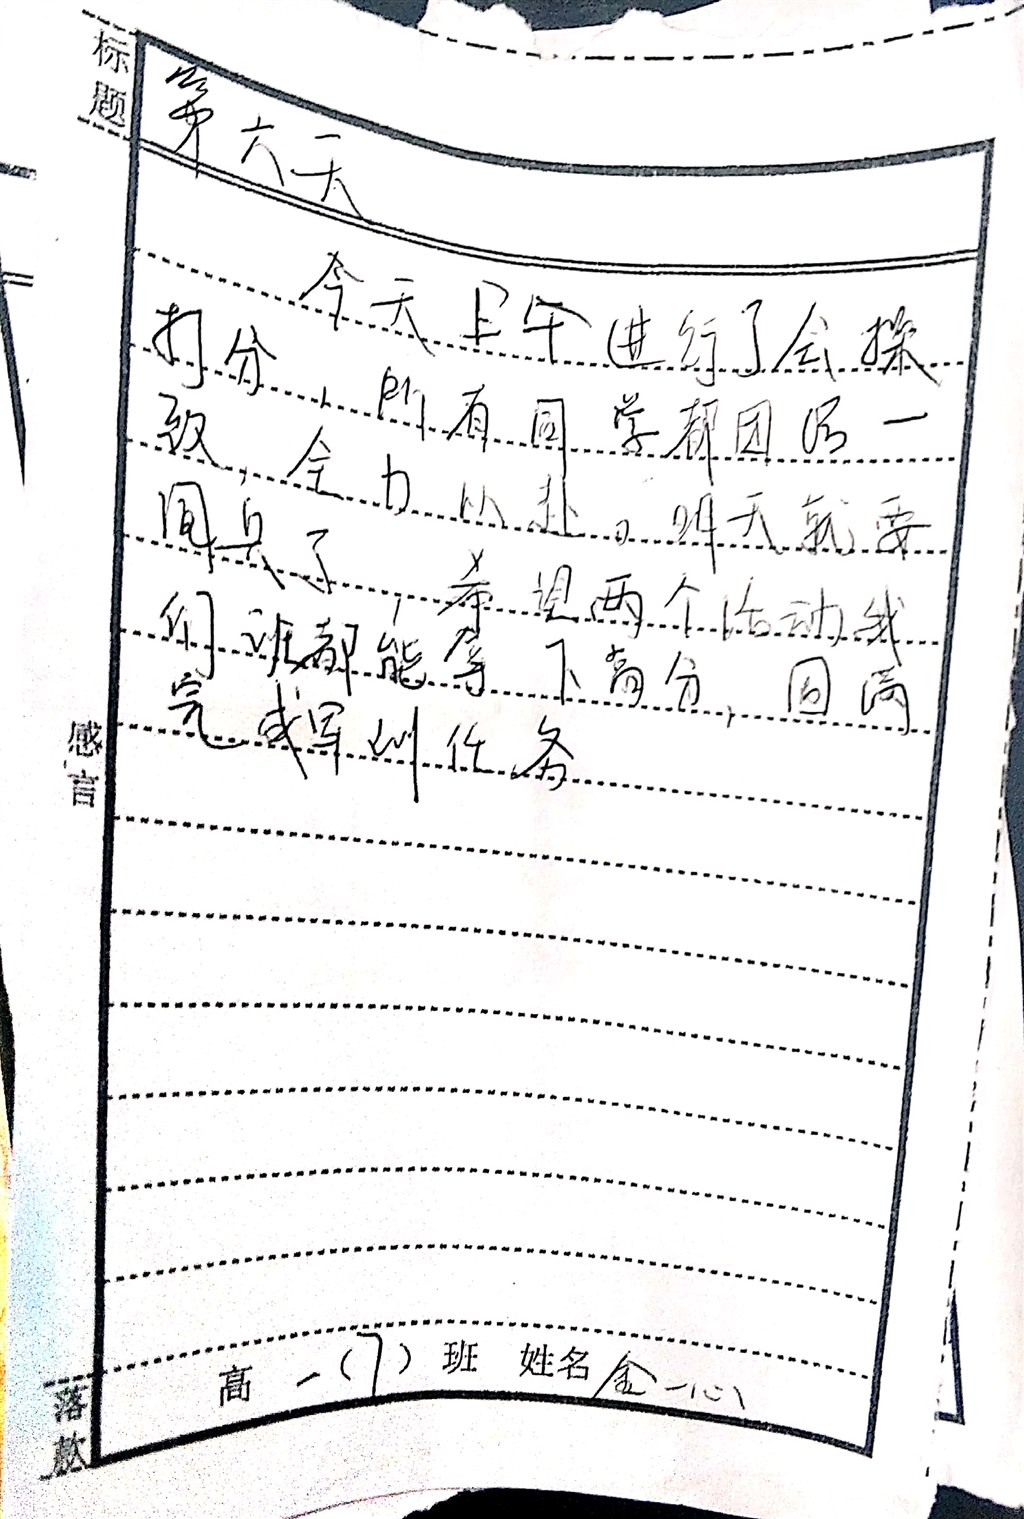 标题
第六天
今天上午进行了会操
打分，所有同学都团结一
致，全力以赴。明天就要
阅兵了，希望两个活动我
们班都能拿下高分，圆满
完成军训任务
感言
高一(7)班 姓名金一心
落款